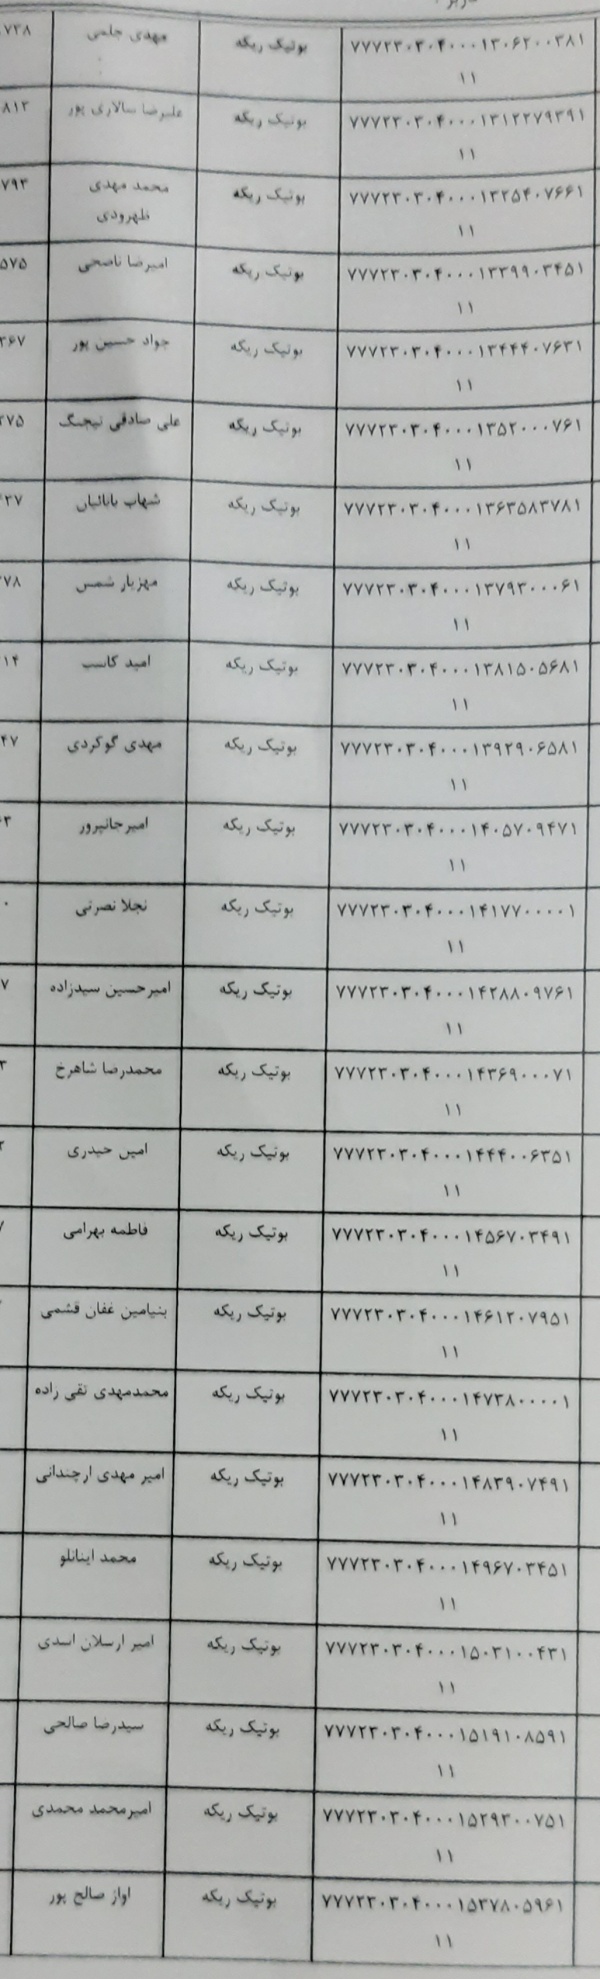 ۷۷۷۲۳۰۳۰۴۰۰۰۱۳۰۶۲۰۰۳۸۱ بوتیک ریکه مهدی حلمی ۷۳۸
۱۱
۷۷۷۲۳۰۳۰۴۰۰۰۱۳۱۲۲۷۹۳۹۱ بوتیک ریکه علیرضا سالاری پور ۸۱۲
۱۱
۷۷۷۲۳۰۳۰۴۰۰۰۱۳۲۵۴۰۷۶۶۱ بوتیک ریکه محمد مهدی ۷۹۳
۱۱ ظهرودی
۷۷۷۲۳۰۳۰۴۰۰۰۱۳۳۹۹۰۳۴۵۱ بوتیک ریکه امیرضا ناصحی ۵۷۵
۱۱
۷۷۷۲۳۰۳۰۴۰۰۰۱۳۴۴۴۰۷۶۳۱ بوتیک ریکه جواد حسین پور ۳۶۷
۱۱
۷۷۷۲۳۰۳۰۴۰۰۰۱۳۵۲۰۰۰۷۶۱ بوتیک ریکه علی صادقی نیجنگ ۲۷۵
۱۱
۷۷۷۲۳۰۳۰۴۰۰۰۱۳۶۳۵۸۳۷۸۱ بوتیک ریکه شهاب بابائیان ۲۷
۱۱
۷۷۷۲۳۰۳۰۴۰۰۰۱۳۷۹۳۰۰۰۶۱ بوتیک ریکه مهزیار شمس ۷۸
۱۱
۷۷۷۲۳۰۳۰۴۰۰۰۱۳۸۱۵۰۵۶۸۱ بوتیک ریکه امید کاسب ۱۴
۱۱
۷۷۷۲۳۰۳۰۴۰۰۰۱۳۹۲۹۰۶۵۸۱ بوتیک ریکه مهدی گوکردی ۴۷
۱۱
۷۷۷۲۳۰۳۰۴۰۰۰۱۴۰۵۷۰۹۴۷۱ بوتیک ریکه امیرجانپرور ۳
۱۱
۷۷۷۲۳۰۳۰۴۰۰۰۱۴۱۷۷۰۰۰۰۱ بوتیک ریکه نجلا نصرتی ۰
۱۱
۷۷۷۲۳۰۳۰۴۰۰۰۱۴۲۸۸۰۹۷۶۱ بوتیک ریکه امیرحسین سیدزاده ۷
۱۱
۷۷۷۲۳۰۳۰۴۰۰۰۱۴۳۶۹۰۰۰۷۱ بوتیک ریکه محمدرضا شاهرخ ۳
۱۱
۷۷۷۲۳۰۳۰۴۰۰۰۱۴۴۴۰۰۶۳۵۱ بوتیک ریکه امین حیدری
۱۱
۷۷۷۲۳۰۳۰۴۰۰۰۱۴۵۶۷۰۳۴۹۱ بوتیک ریکه فاطمه بهرامی
۱۱
۷۷۷۲۳۰۳۰۴۰۰۰۱۴۶۱۲۰۷۹۵۱ بوتیک ریکه بنیامین عفان قشمی
۱۱
۷۷۷۲۳۰۳۰۴۰۰۰۱۴۷۳۸۰۰۰۰۱ بوتیک ریکه محمدمهدی تقی زاده
۱۱
۷۷۷۲۳۰۳۰۴۰۰۰۱۴۸۳۹۰۷۴۹۱ بوتیک ریکه امیر مهدی ارچندانی
۱۱
۷۷۷۲۳۰۳۰۴۰۰۰۱۴۹۶۷۰۳۴۵۱ بوتیک ریکه محمد اینانلو
۱۱
۷۷۷۲۳۰۳۰۴۰۰۰۱۵۰۳۱۰۰۴۳۱ بوتیک ریکه امیر ارسلان اسدی
۱۱
۷۷۷۲۳۰۳۰۴۰۰۰۱۵۱۹۱۰۸۵۹۱ بوتیک ریکه سیدرضا صالحی
۱۱
۷۷۷۲۳۰۳۰۴۰۰۰۱۵۲۹۳۰۰۷۵۱ بوتیک ریکه امیرمحمد محمدی
۱۱
۷۷۷۲۳۰۳۰۴۰۰۰۱۵۳۷۸۰۵۹۶۱ بوتیک ریکه اواز صالح پور
۱۱